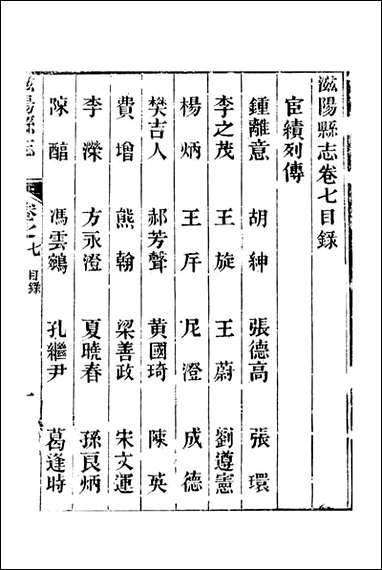 滋陽縣志卷七目錄
宦績列傳
鍾離意 胡紳 張德高 張環
李之茂 王旋 王蔚 劉遵憲
楊炳 王庌 尼澄 成德
樊吉人 郝芳聲 黃國琦 陳英
費增 熊翰 梁善政 宋文運
李濚 方永澄 夏曉春 孫良炳
陳醕 馮雲鵷 孔繼尹 葛逢時
滋陽縣志 卷之七 目錄 一